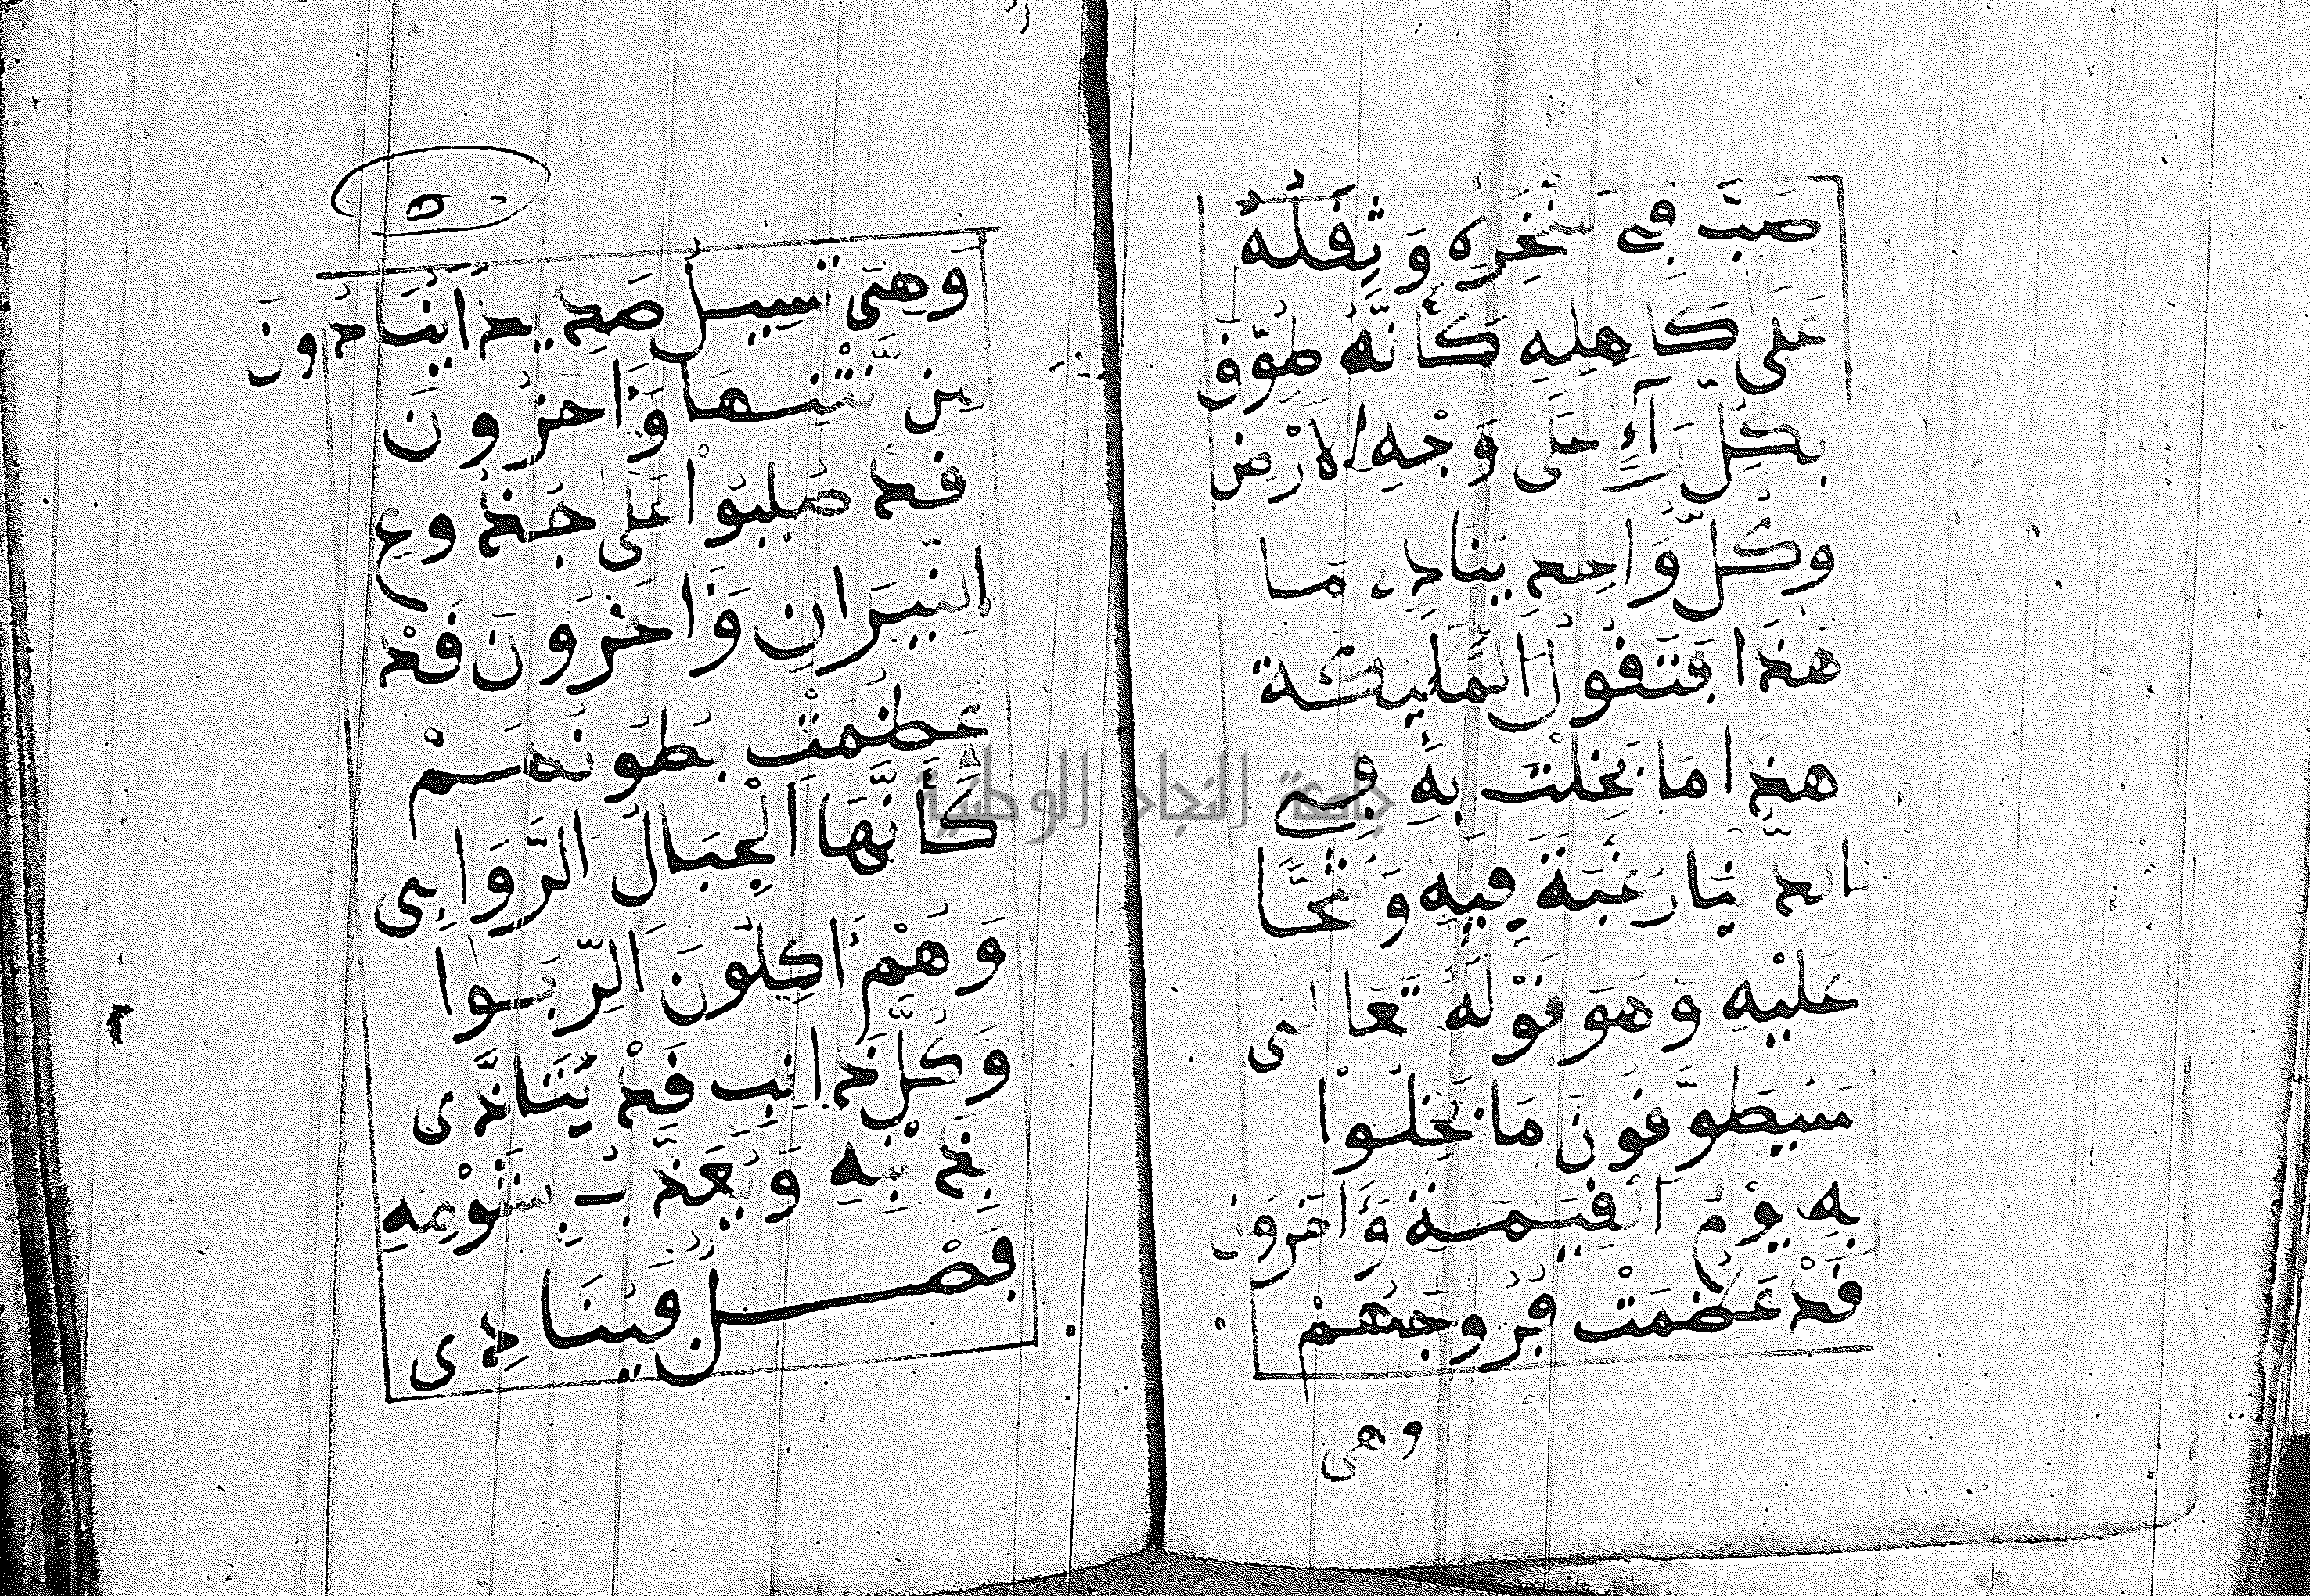 صَبَّ فِي مَنْخَرِهِ وَثِقَلُهُ
عَلَى كَاهِلِهِ كَأَنَّهُ طُوِّقَ
بِكُلِّ رَآءٍ عَلَى وَجْهِ الاَرْضِ
وَكُلُّ وَاحِدٍ يُنَادِي مَا
هَذَا فَتَقُولُ الْمَلَيِكَةُ
هَذَا مَا بَخِلْتَ بِهِ فِي
الدُّنْيَا رَغْبَةً فِيهِ وَشُحًّا
عَلَيْهِ وَهُوَ قَوْلُهُ تَعَالَى
سَيُطَوَّقُونَ مَا بَخِلُوا
بِهِ يَوْمَ الْقِيَمَةِ وَءَاخَرُونَ
قَدْ عَظُمَتْ فُرُوجُهُمْ
وهي
وَهِيَ تَسِيلُ صَدِيدًا يَتَأَذَّوْنَ
مِنْ نَّتْنِهَا وَءَاخَرُونَ
قَدْ صُلِبُوا عَلَى جُذُوعِ
النِّيرَانِ وَءَاخَرُونَ قَدْ
عَظُمَتْ بُطُونُهُمْ
كَأَنَّهَا الْجِبَالُ الرَّوَاسِي
وَهُمْ ءَاكِلُونَ الرِّبَوا
وَكُلُّ ذَانِبٍ قَدْ يُّنَادَى
بِذَنْبِهِ وَيُعَذَّبُ بِشُؤْمِهِ
فَصْل فَيُنَادِي
جامعة النجاح الوطنية